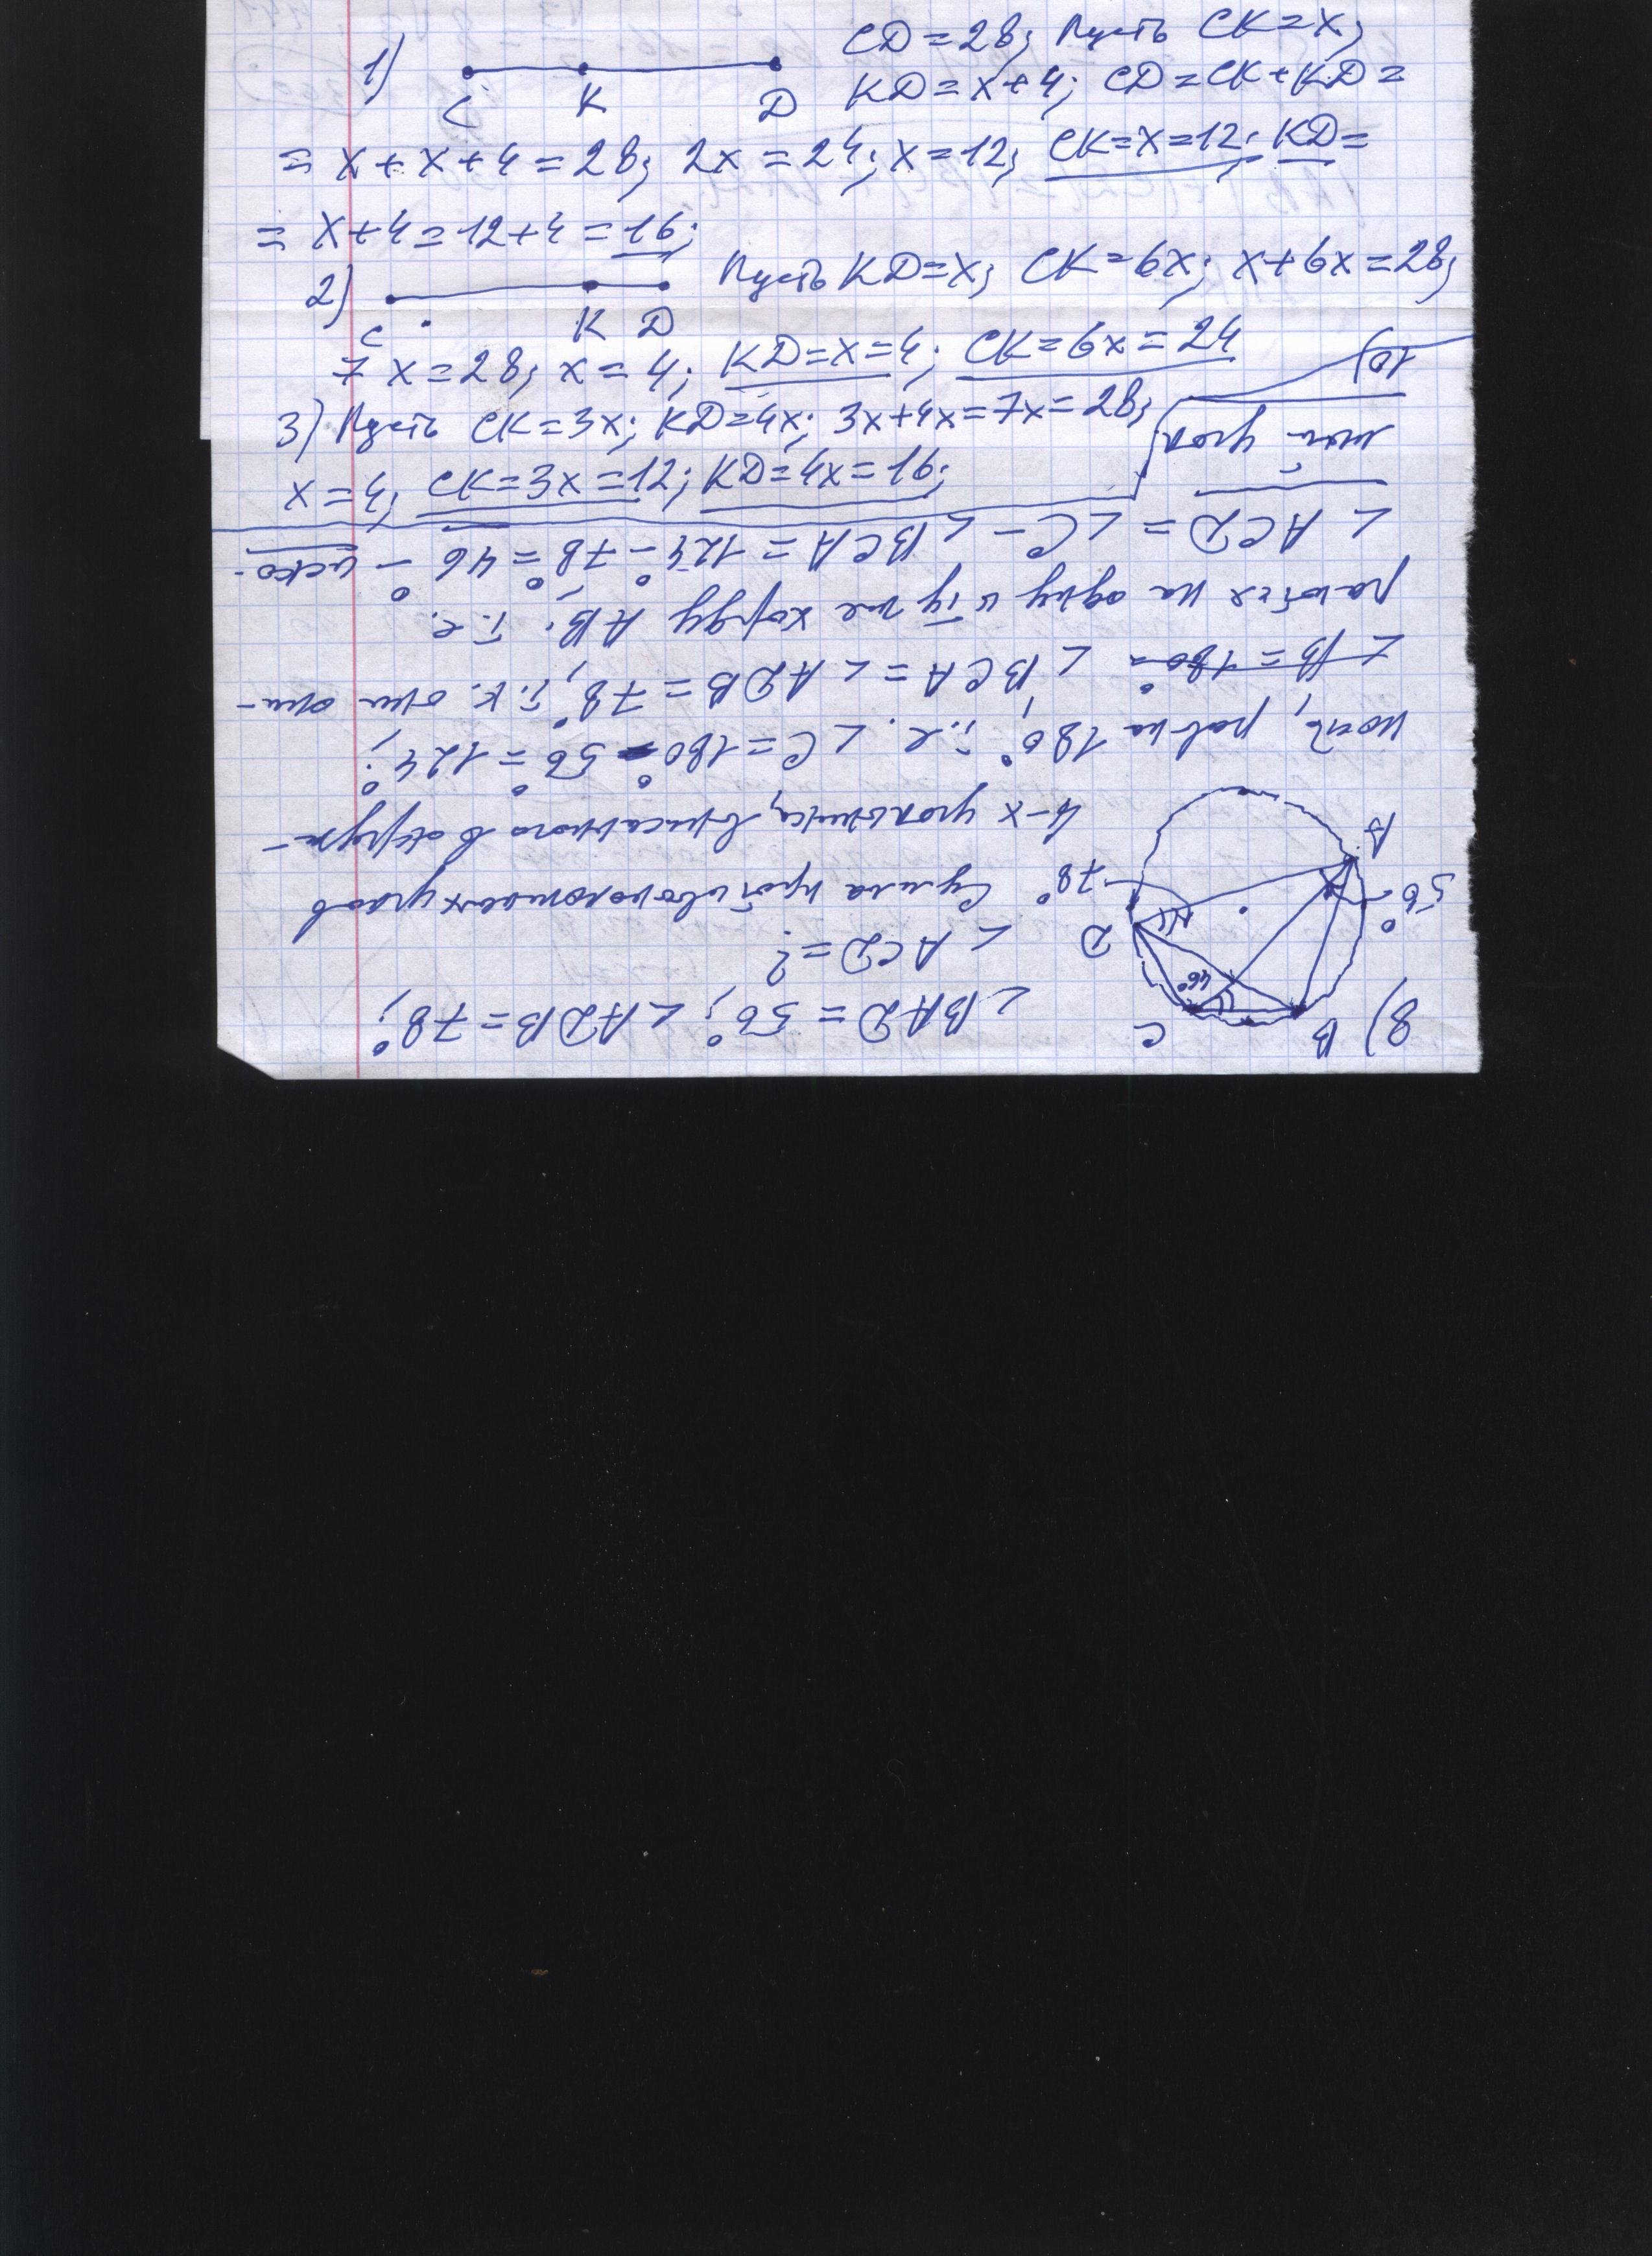 1) CD=28; Пусть CK=x;
C K D KD=x+4; CD=CK+KD=
= x+x+4=28; 2x=24; x=12; CK=x=12; KD=
= x+4=12+4=16;
2) Пусть KD=x; CK=6x; x+6x=28;
C K D
7x=28; x=4; KD=x=4; CK=6x=24
3) Пусть CK=3x; KD=4x; 3x+4x=7x=28;
x=4; CK=3x=12; KD=4x=16;
8) B C ∠BAD=56°; ∠ADB=78°;
46° ∠ACD=?
56° A D 78° Сумма противоположных углов
4-х угольника, вписанного в окруж-
ность, равна 180° т.е. ∠C=180°-56°=124°;
∠B=180° ∠BCA=∠ADB=78°, т.к. они опи-
раются на одну и ту же хорду AB. т.е.
∠ACD=∠C-∠BCA=124°-78°=46° - иско-
мый угол.
10)